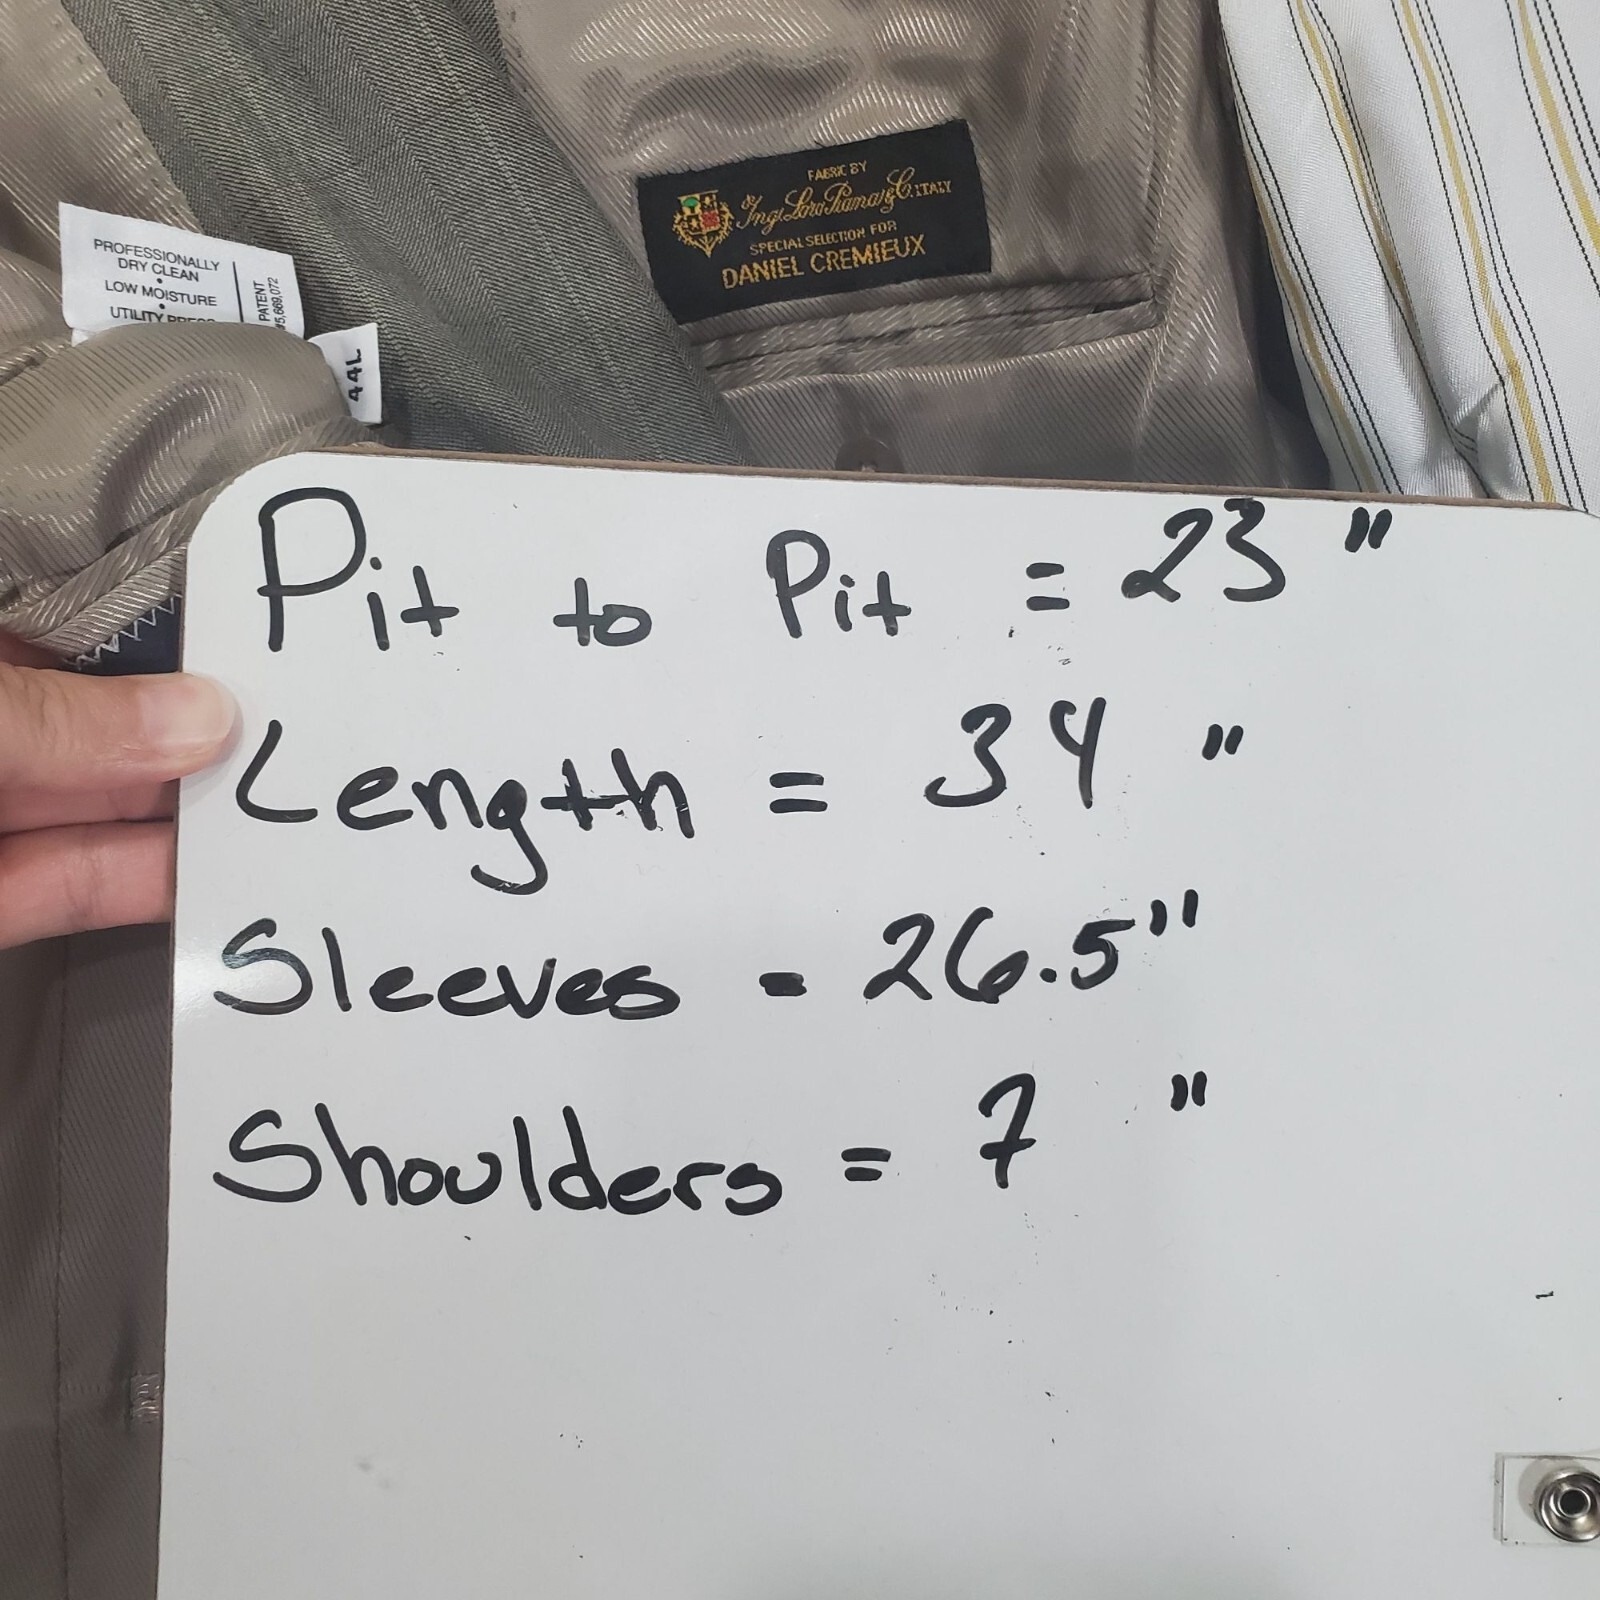 PROFESSIONALLY
DRY CLEAN
•
LOW MOISTURE
•
UTILITY PRESS
PATENT
#5,669,072
44L
FABRIC BY
Ing. Loro Piana & C. ITALY
SPECIAL SELECTION FOR
DANIEL CREMIEUX
Pit to Pit = 23"
Length = 34"
Sleeves = 26.5"
Shoulders = 7"